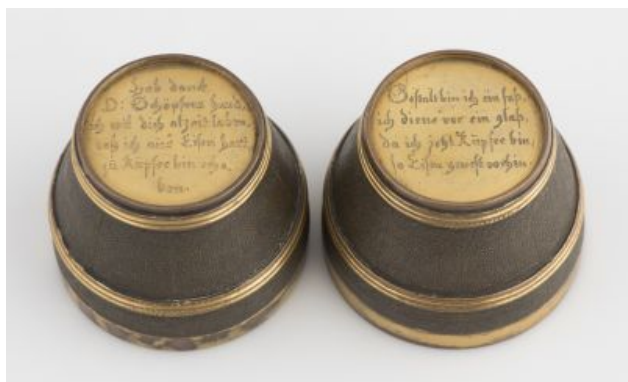 hab danck
D: Schöpferß hand,
ich wil dich alzeit laben,
weß ich auß Eisen hart
zu Kupfer bin
ben.
Gestalt bin ich ein faß,
ich diene vor ein glaß,
da ich jetzt Kupfer bin,
so Eisen gewest vorhin.